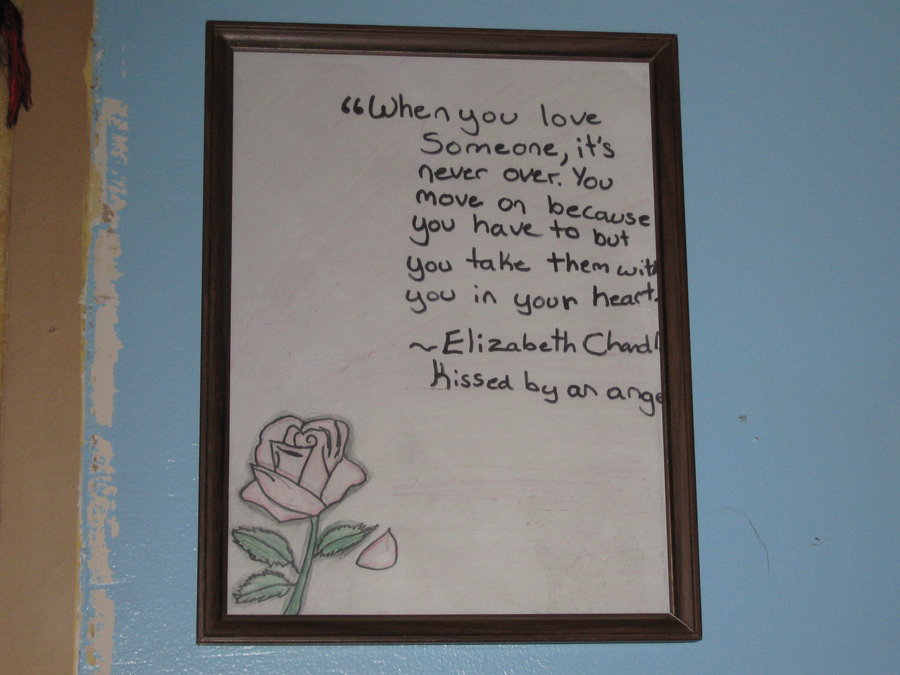 “When you love
Someone, it's
never over. You
move on because
you have to but
you take them with
you in your heart.
~Elizabeth Chandl
Kissed by an ange